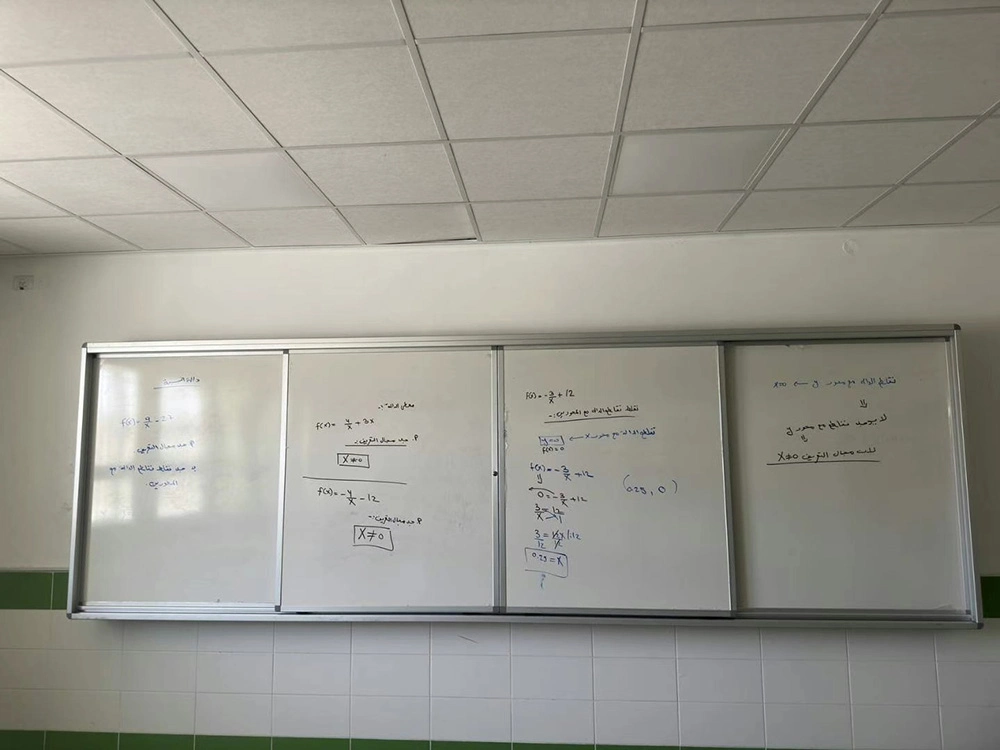 f(x) = 9/x - 27
جد مجال التعريف
جد نقاط تقاطع الدالة مع
المحورين
معطى الدالة:-
f(x) = 4/x + 3x
جد مجال التعريف:-
X≠0
f(x) = -4/x - 12
جد مجال التعريف:-
X≠0
f(x) = -3/x + 12
نقاط تقاطع الدالة مع المحورين:-
تقاطع الدالة مع محور x ← y=0
f(x)=0
f(x) = -3/x + 12
y
0 = -3/x + 12
(0.25, 0)
3/x = 12/1
3/12 = 12x/12 /:12
0.25 = x
تقاطع الدالة مع محور y ← x=0
لا يوجد تقاطع مع محور y
مجال التعريف X≠0